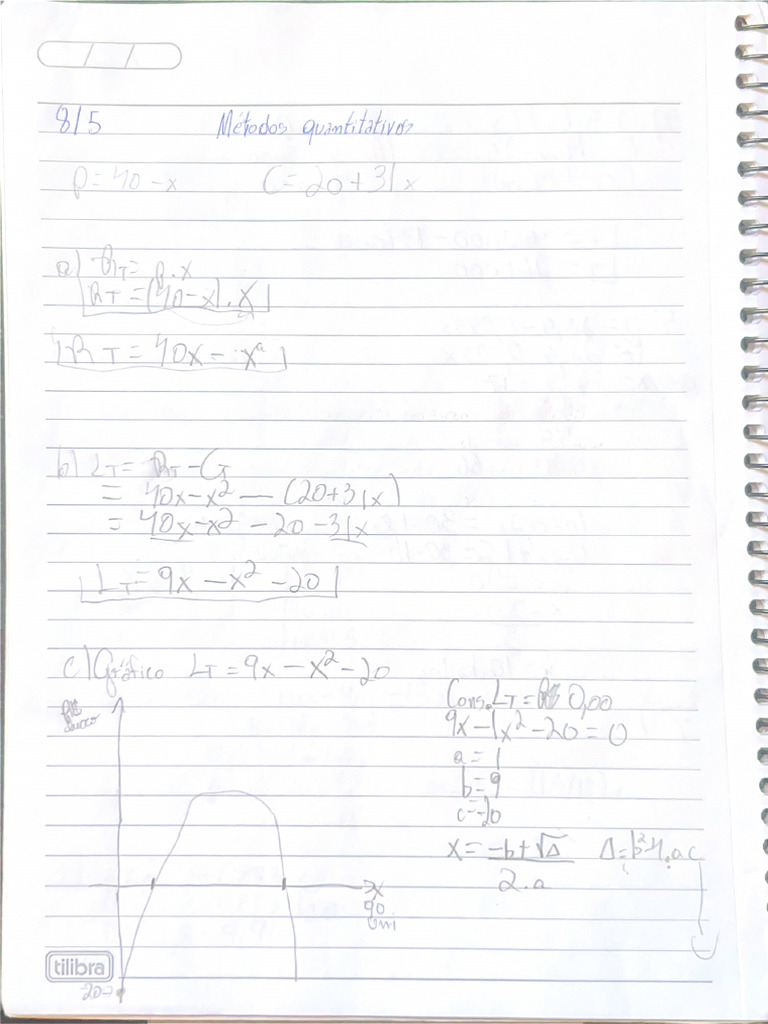 8/5 Métodos quantitativos
P=40-x C=20+31x
a) RT= P.x
RT = (40-x).x
RT = 40x - x²
b) LT= RT-CT
= 40x-x² - (20+31x)
= 40x-x² - 20 - 31x
LT=9x-x²-20
c) Gráfico LT=9x-x²-20
Cons. LT= R$ 0,00
9x-1x²-20=0
a=1
b=9
c=-20
x= -b+√Δ Δ=b²-4.ac
2.a
x
Uni
tilibra
-20